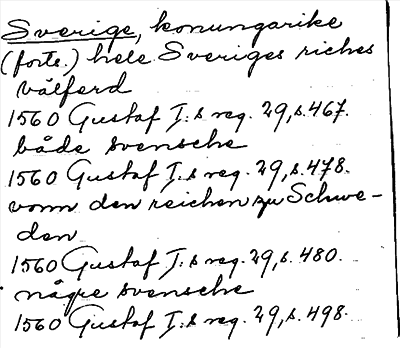 Sverige, konungarike
(forts.) hele Sveriges riches
välferd
1560 Gustaf I:s reg. 29, s. 467.
både svensche
1560 Gustaf I:s reg. 29, s. 478.
vonn den reichen zu Schwe-
den
1560 Gustaf I:s reg. 29, s. 480.
någre svensche
1560 Gustaf I:s reg. 29, s. 498.